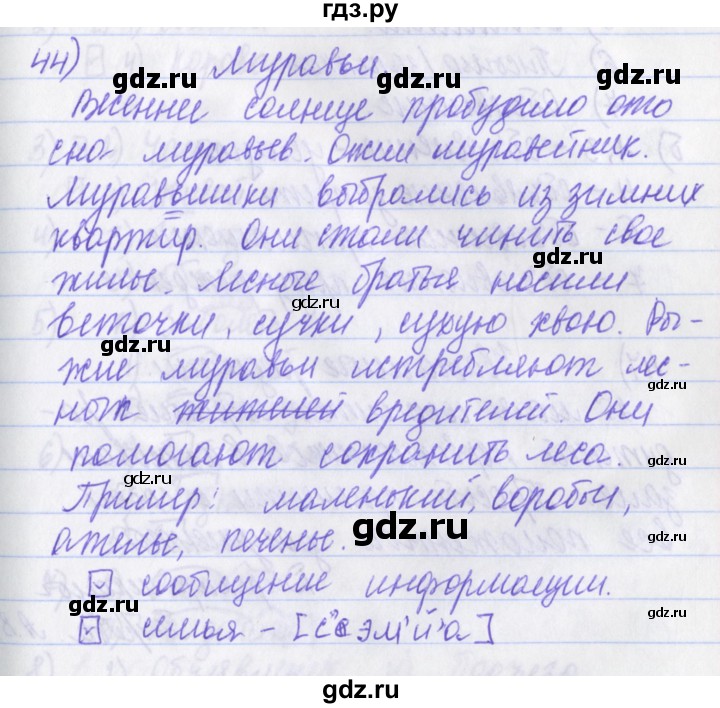 гдз.ру
44) Муравьи
gdz.ru gdz.ru
Весеннее солнце пробудило ото
сна муравьёв. Ожил муравейник.
gdz.ru gdz.ru
Муравьишки выбрались из зимних
квартир. Они стали чинить свое
gdz.ru gdz.ru
жилье. Лесные братья носили
gdz.ru
веточки, сучки, сухую хвою. Ры-
gdz.ru
жие муравьи истребляют лес-
gdz.ru
ных жителей вредителей. Они
помогают сохранить леса.
gdz.ru gdz.ru
Пример: маленький, воробьи,
ателье, печенье. gdz.ru
сообщение информации.
gdz.ru gdz.ru
семья - [с'эм'й'а]
gdz.ru
gdz.ru